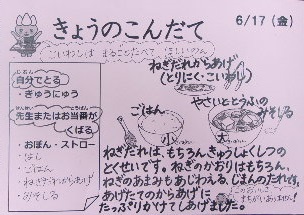 きょうのこんだて
6/17(金)
こいわしは まるごとたべて ほしいのん
ねぎだれからあげ
(とりにく・こいわし)
じぶん
自分でとる
・ぎゅうにゅう
せんせい とうばん
先生またはお当番が
くばる
・おぼん・ストロー
・はし
・ごはん
・ねぎだれからあげ
・みそしる
ごはん
小
やさいととうふの
みそしる
大
ねぎだれは、もちろんきゅうしょくしつの
とくせいです。ねぎのかおりはもちろん、
ねぎのあまみもあじわえる、じまんのたれです。
あげたてのからあげに
たっぷりかけてしあげました。